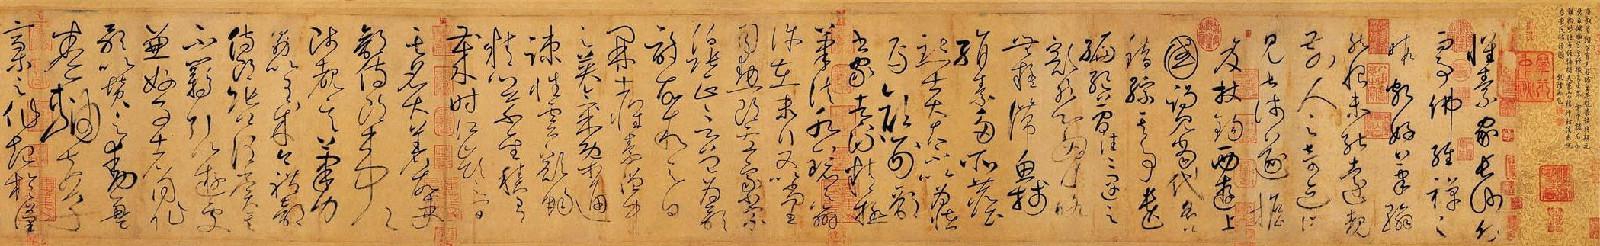 懷素家長沙幼
而事佛經禪之
暇頗好筆翰
然恨未能遠覩
前人之奇迹所
見甚淺遂擔
笈杖錫西遊上
國謁見當代名公
錯綜其事遺
編絶簡往往遇之
豁然心胸略
無疑滯魚牋
絹素多所塵
點士大夫不以為怪
焉顏刑部
書家者流精極
筆法水鏡之辨
許在末行又以尚書
司勳郎盧象小宗
伯張正言曾為歌
詩故敘之曰
開士懷素僧中
之英氣概通
疎性靈豁暢
精心草聖積有
歲時江嶺之間
其名大著故吏
部侍郎韋公
陟覩其筆力
勗以有成今禮部
侍郎張公謂賞其
不羈引以遊處
兼好事者同作
歌以贊之動盈
卷軸夫草
稾之作起於漢